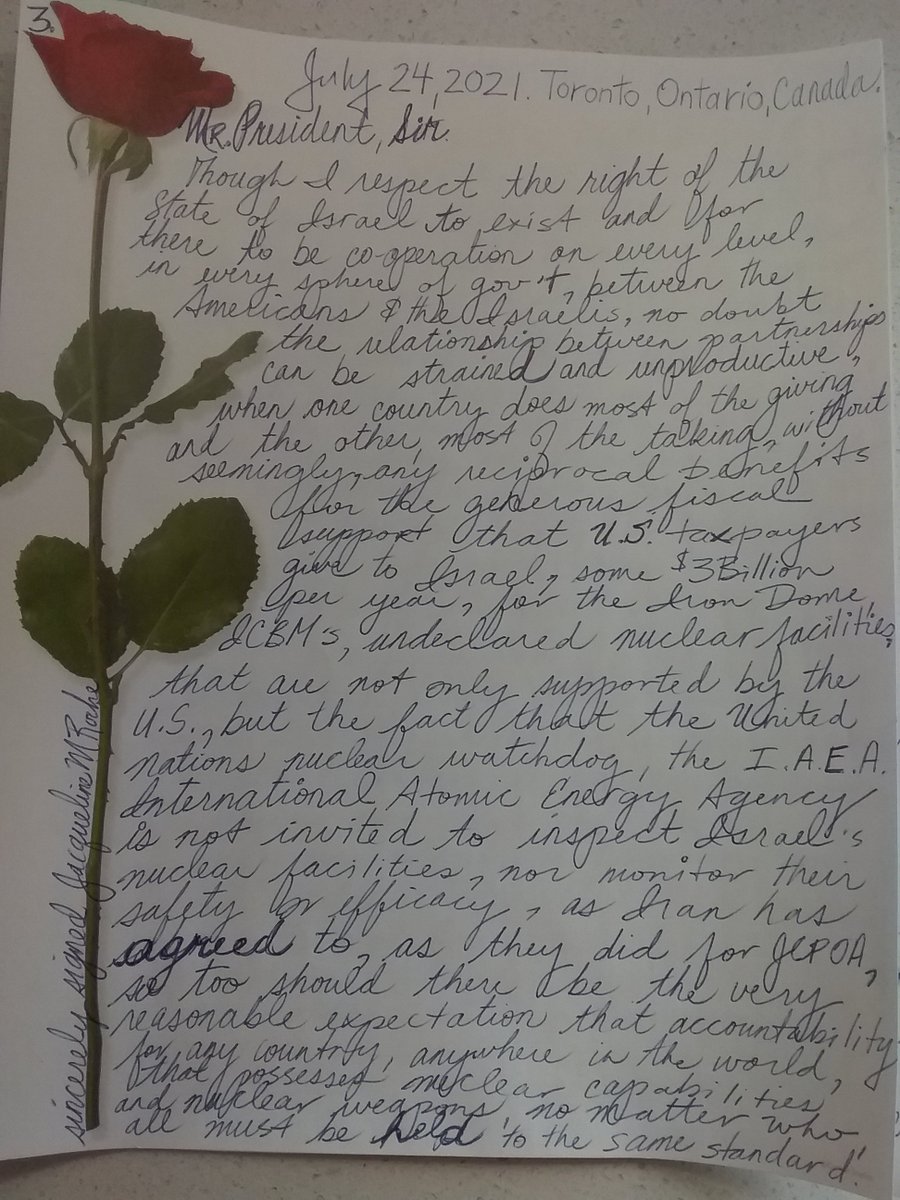 3.
July 24, 2021. Toronto, Ontario, Canada.
Mr. President, Sir.
Though I respect the right of the
State of Israel to exist and for
there to be co-operation on every level,
in every sphere of gov't, between the
Americans & the Israelis, no doubt
the relationship between partnerships
can be strained and unproductive,
when one country does most of the giving
and the other, most of the talking, without
seemingly, any reciprocal benefits
for the generous fiscal
support that U.S. taxpayers
give to Israel, some $3Billion
per year, for the Iron Dome,
ICBM's, undeclared nuclear facilities,
that are not only supported by the
U.S., but the fact that the United
nations nuclear watchdog, the I.A.E.A.
International Atomic Energy Agency
is not invited to inspect Israel's
nuclear facilities, nor monitor their
safety or efficacy, as Iran has
agreed to, as they did for JCPOA,
so too should there be the very
reasonable expectation that accountability
for any country, anywhere in the world,
that possesses nuclear capabilities
and nuclear weapons, no matter who
all must be held to the same standard!
sincerely signed Jacqueline M Roche